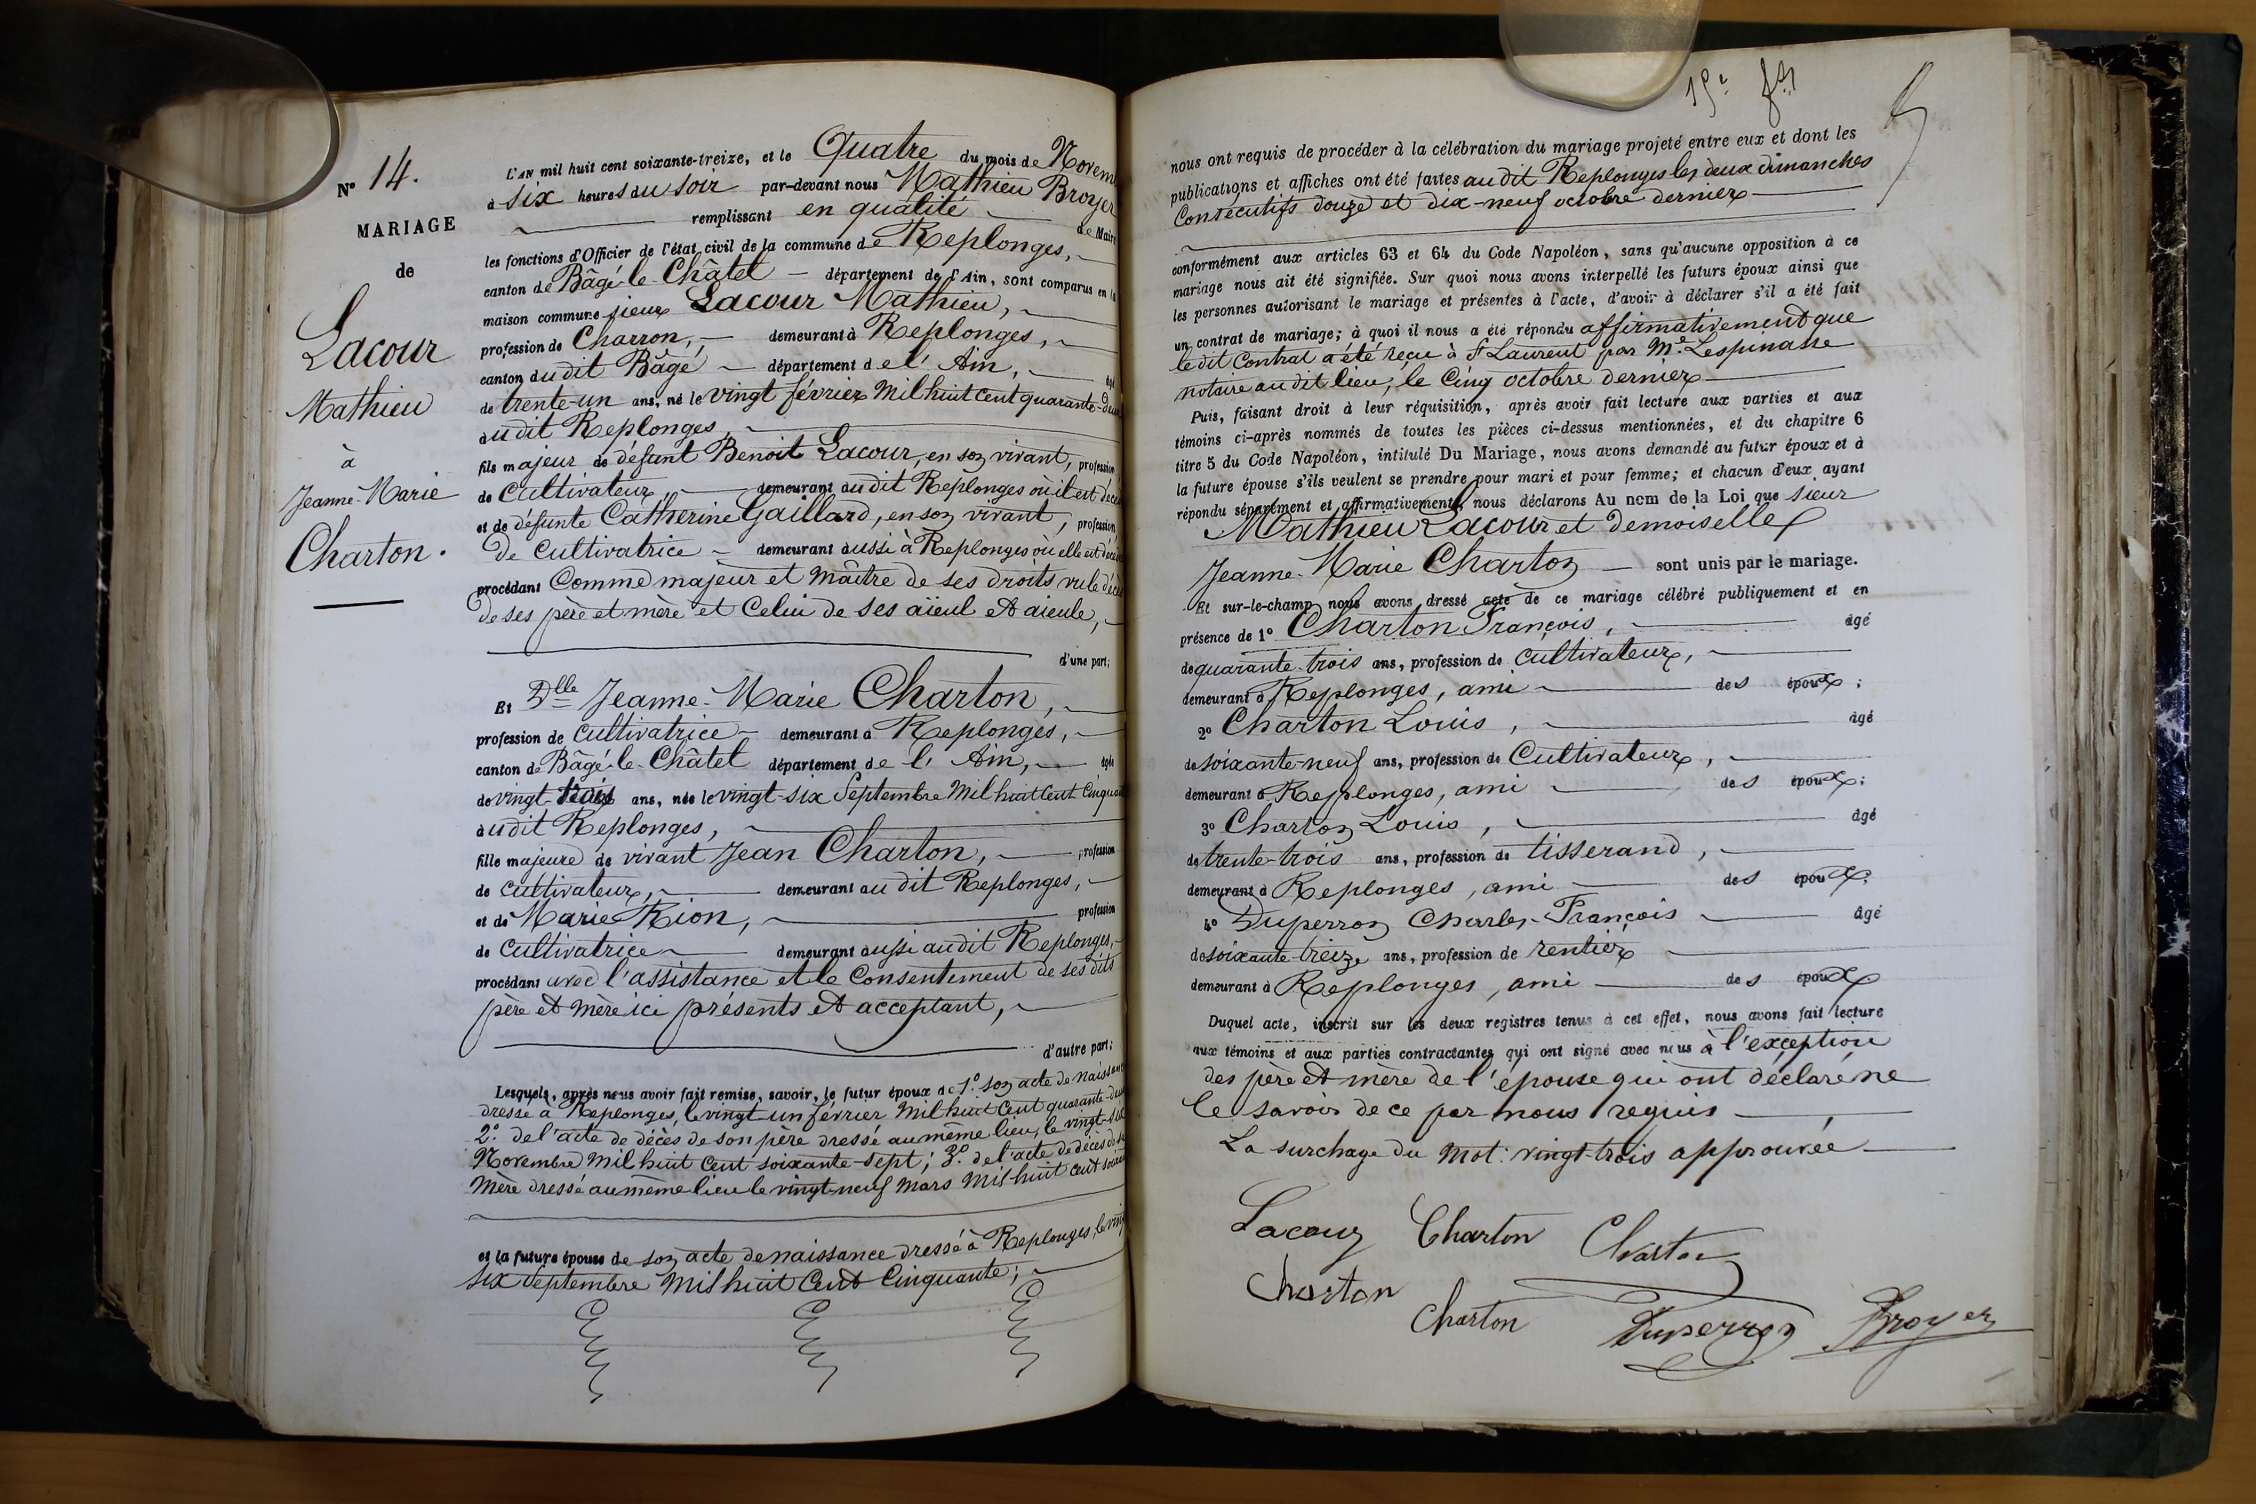 N° 14.
MARIAGE
de
Lacour
Mathieu
à
Jeanne-Marie
Charton.
L'AN mil huit cent soixante-treize, et le Quatre du mois de Novem
à six heures du soir par-devant nous Mathieu Broyer
remplissant en qualité de Maire
les fonctions d'Officier de l'état civil de la commune de Replonges,
canton de Bâgé-le-Châtel département de l'Ain, sont comparus en la
maison commune sieur Lacour Mathieu,
profession de Charron, demeurant à Replonges,
canton du dit Bâgé département de l'Ain, âgé
de trente-un ans, né le vingt février Mil huit cent quarante-deux
audit Replonges,
fils majeur de défunt Benoit Lacour, en son vivant, profession
de Cultivateur, demeurant audit Replonges où il est décé
et de défunte Catherine Gaillard, en son vivant, profession
De Cultivatrice demeurant aussi à Replonges où elle est décé
procédant Comme majeur et Maître de ses droits vu le décè
De ses père et mère et Celui de ses aïeul et aïeule,
d'une part;
Et Dlle Jeanne-Marie Charton,
profession de Cultivatrice demeurant à Replonges,
canton de Bâgé-le-Châtel département de l'Ain, âgée
de vingt-trois ans, née le vingt-six Septembre Mil huit Cent Cinquan
audit Replonges,
fille majeure de vivant Jean Charton, profession
de Cultivateur, demeurant au dit Replonges,
et de Marie Rion, profession
de Cultivatrice demeurant aussi audit Replonges,
procédant avec l'assistance et le Consentement de ses dits
père et Mère ici présents et acceptant,
d'autre part;
Lesquels, après nous avoir fait remise, savoir, le futur époux de 1° son acte de naissan
dressé à Replonges, le vingt un février Mil huit Cent quarante-deux
2° de l'acte de décès de son père dressé au même lieu, le vingt-six
Novembre Mil huit Cent soixante-sept; 3° de l'acte de décès de sa
Mère dressé au même lieu le vingt-neuf Mars Mil huit Cent soixan
et la future épouse de son acte de naissance dressé à Replonges, le ving
six Septembre Mil huit Cent Cinquante;
nous ont requis de procéder à la célébration du mariage projeté entre eux et dont les
publications et affiches ont été faites au dit Replonges les deux dimanches
Consécutifs douze et dix-neuf octobre dernier
conformément aux articles 63 et 64 du Code Napoléon, sans qu'aucune opposition à ce
mariage nous ait été signifiée. Sur quoi nous avons interpellé les futurs époux ainsi que
les personnes autorisant le mariage et présentes à l'acte, d'avoir à déclarer s'il a été fait
un contrat de mariage; à quoi il nous a été répondu affirmativement que
le dit Contrat a été reçu à St Laurent par Me Lespinasse
notaire au dit lieu, le Cinq octobre dernier
Puis, faisant droit à leur réquisition, après avoir fait lecture aux parties et aux
témoins ci-après nommés de toutes les pièces ci-dessus mentionnées, et du chapitre 6
titre 5 du Code Napoléon, intitulé Du Mariage, nous avons demandé au futur époux et à
la future épouse s'ils veulent se prendre pour mari et pour femme; et chacun d'eux ayant
répondu séparément et affirmativement, nous déclarons Au nom de la Loi que sieur
Mathieu Lacour et Demoiselle
Jeanne-Marie Charton sont unis par le mariage.
Et sur-le-champ nous avons dressé acte de ce mariage célébré publiquement et en
présence de 1° Charton François, âgé
de quarante-trois ans, profession de Cultivateur,
demeurant à Replonges, ami des époux;
2° Charton Louis, âgé
de soixante-neuf ans, profession de Cultivateur,
demeurant à Replonges, ami des époux;
3° Charton Louis, âgé
de trente-trois ans, profession de tisserand,
demeurant à Replonges, ami des époux;
4° Duperron Charles-François âgé
de soixante-treize ans, profession de rentier
demeurant à Replonges, ami des époux
Duquel acte, inscrit sur les deux registres tenus à cet effet, nous avons fait lecture
aux témoins et aux parties contractantes qui ont signé avec nous à l'exception
des père et mère de l'épouse qui ont déclaré ne
le savoir de ce par nous requis
La surchage du Mot: vingt-trois approuvée
Lacour Charton Charton
Charton
Charton Duperron Broyer